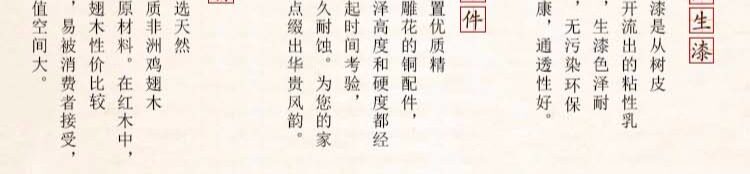 生漆
漆是从树皮
开流出的粘性乳
，生漆色泽耐
，无污染环保
康，通透性好。
件
置优质精
雕花的铜配件，
泽高度和硬度都经
起时间考验，
久耐蚀。为您的家
点缀出华贵风韵。
选天然
质非洲鸡翅木
原材料。在红木中，
翅木性价比较
，易被消费者接受，
值空间大。